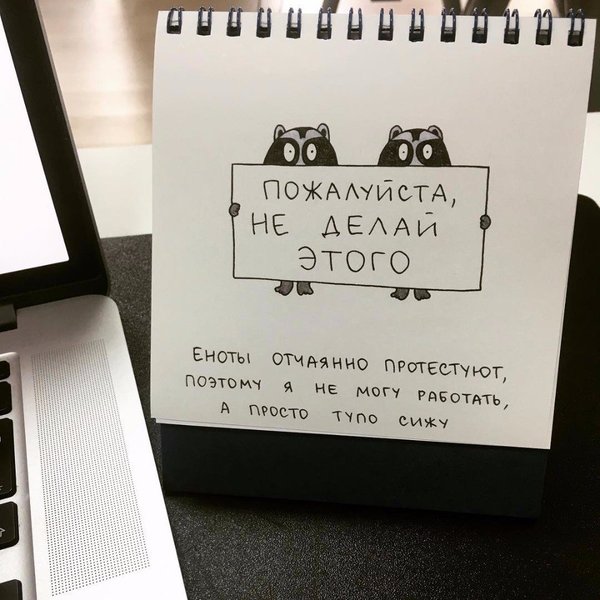 ПОЖАЛУЙСТА,
НЕ ДЕЛАЙ
ЭТОГО
ЕНОТЫ ОТЧАЯННО ПРОТЕСТУЮТ,
ПОЭТОМУ Я НЕ МОГУ РАБОТАТЬ,
А ПРОСТО ТУПО СИЖУ